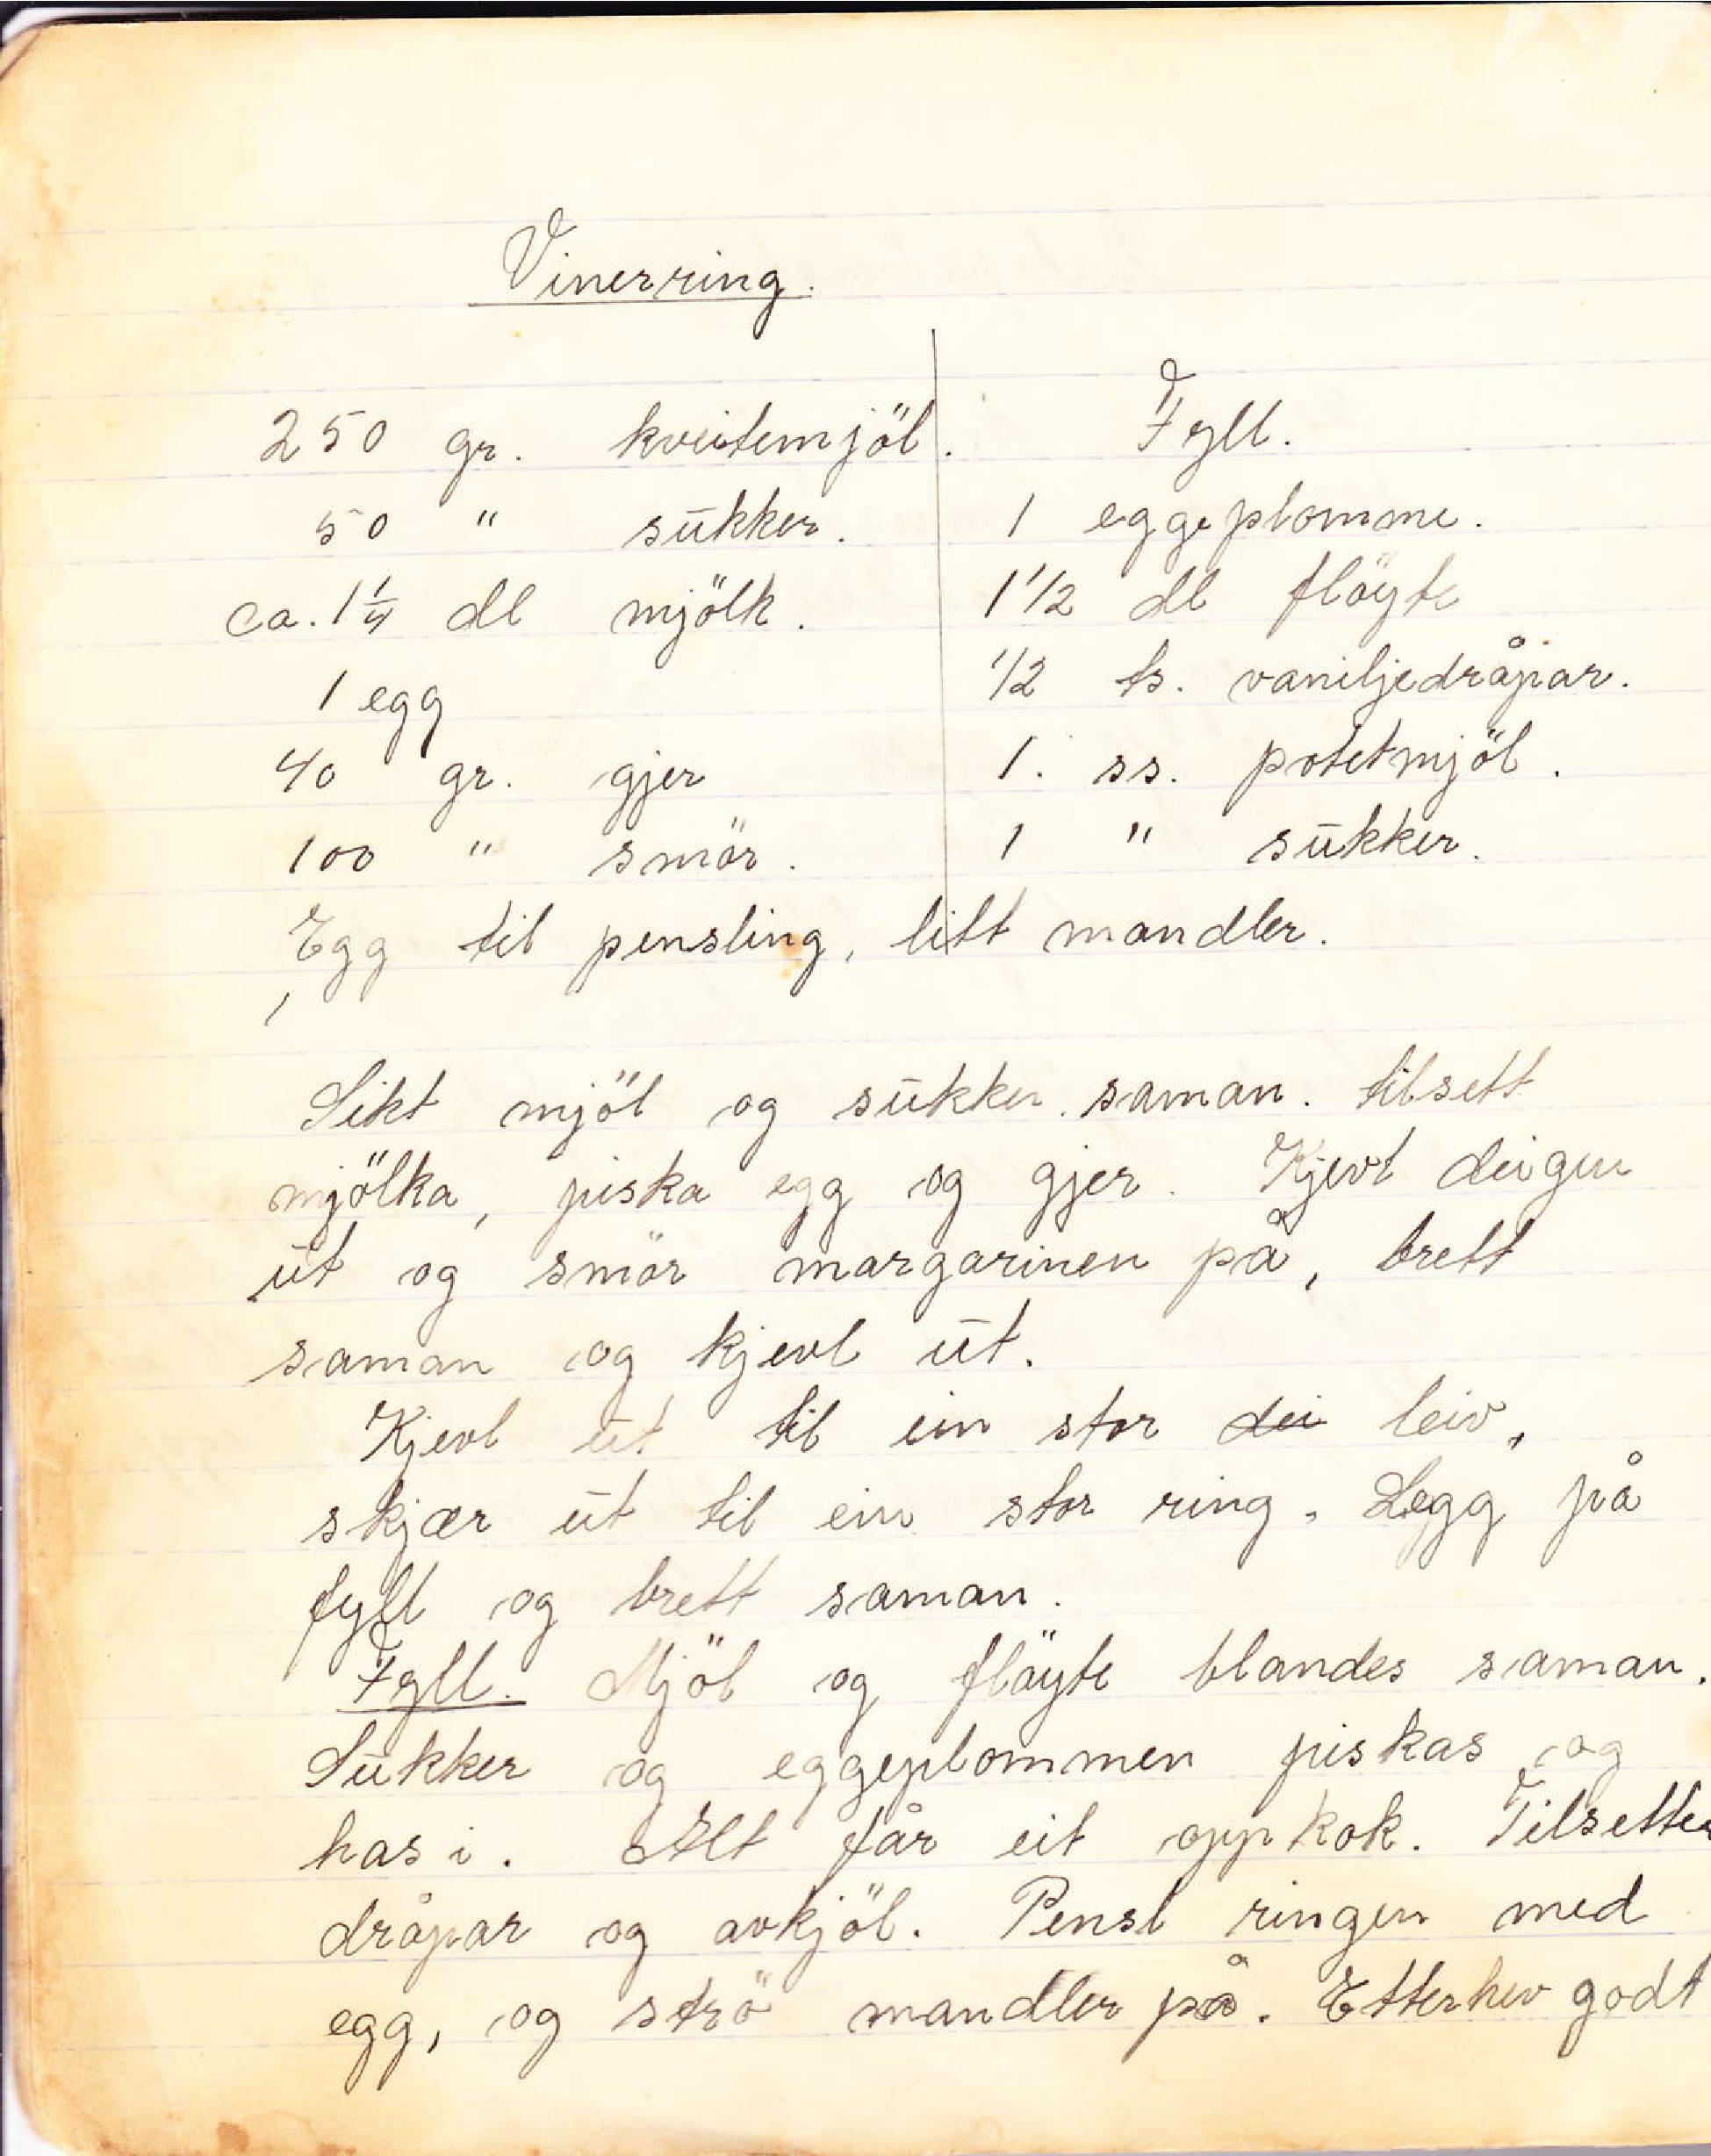 Vinerring.
250 gr. kveitemjöl.
50 " sūkker.
ca. 1¼ dl mjölk.
1 egg
40 gr. gjer
100 " smör.
Fyll.
1 eggeplomme.
1 1/2 dl flöyte
1/2 ts. vaniljedråpar.
1. ss. potetmjöl.
1 " sūkker.
Egg til pensling, litt mandler.
Sikt mjöl og sūkker saman. tilsett
mjölka, piska egg og gjer. Kjevl deigen
ūt og smör margarinen på, brett
saman og kjevl ūt.
Kjevl ūt til ein stor dei leiv,
skjær ūt til ein stor ring. Legg på
fyll og brett saman.
Fyll. Mjöl og flöyte blandes saman.
Sūkker og eggeplommen piskas og
has i. Alt får eit oppkok. Tilsettes
dråpar og avkjöl. Pensl ringen med
egg, og strö mandler på. Etterhev godt